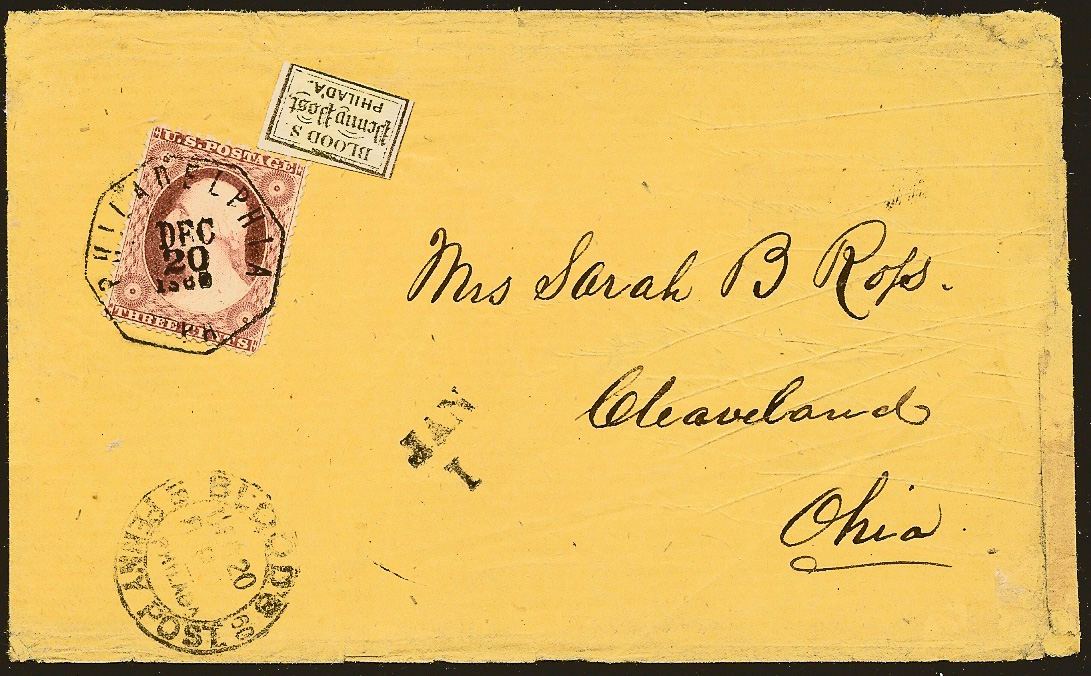 BLOOD'S
Penny Post
PHILAD'A.
U.S. POSTAGE
PHILADELPHIA
DEC
20
1860
PA
THREE CENTS
Mrs Sarah B Ross.
Cleaveland
Ohio.
JAN
1
BLOOD'S PENNY POST
20
60
PHILADA